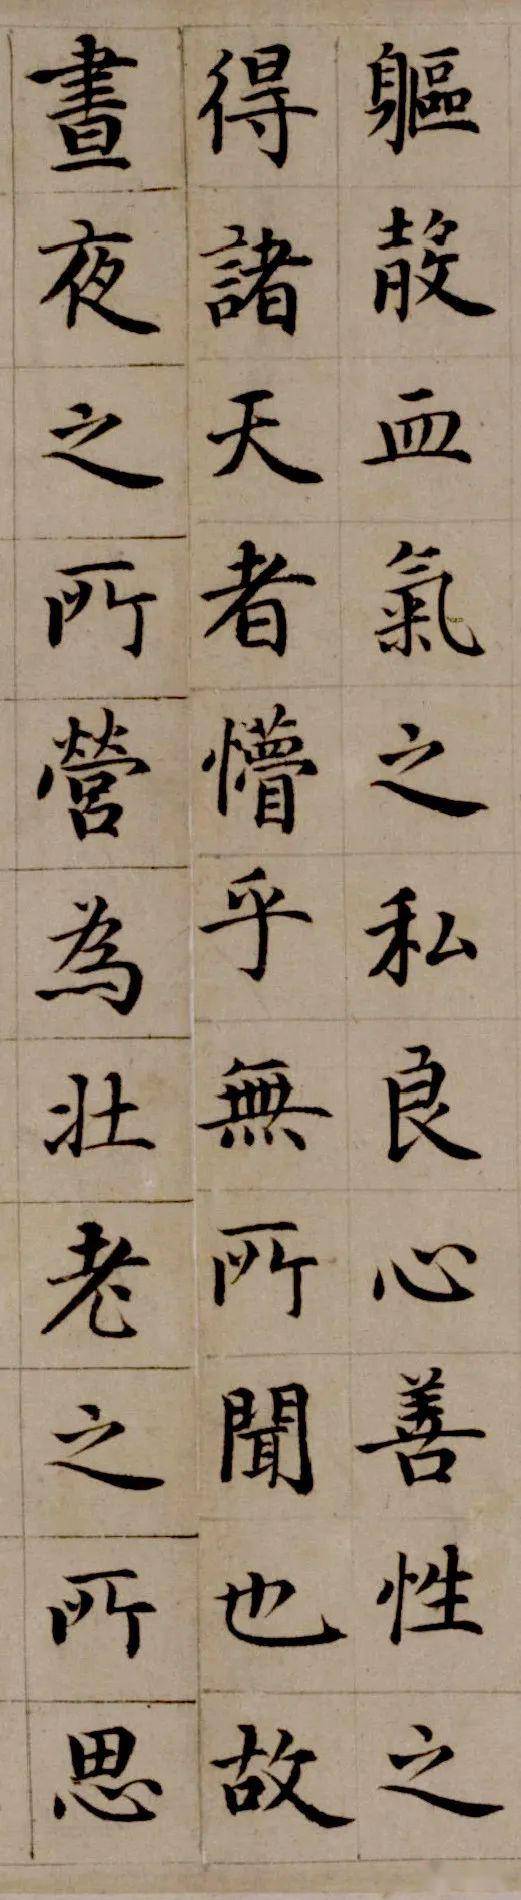 軀殼血氣之私良心善性之
得諸天者懵乎無所聞也故
晝夜之所營為壯老之所思